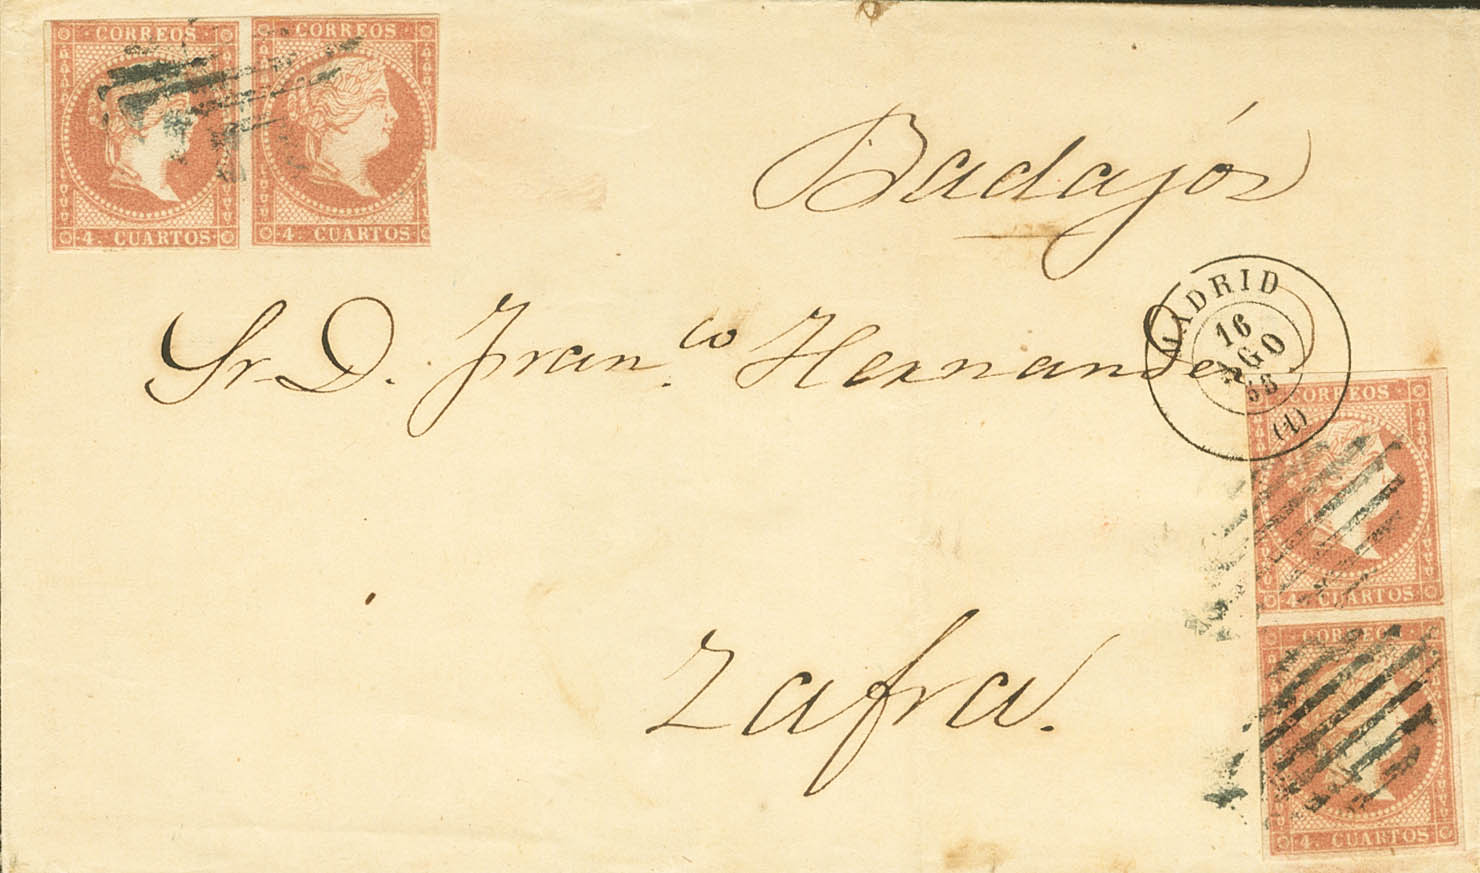 CORREOS CORREOS
4. CUARTOS 4. CUARTOS
Badajós
Sr. D. Fran.co Hernandez
MADRID
16
AGO
(1)
CORREOS
4. CUARTOS
CORREOS
4. CUARTOS
Zafra.